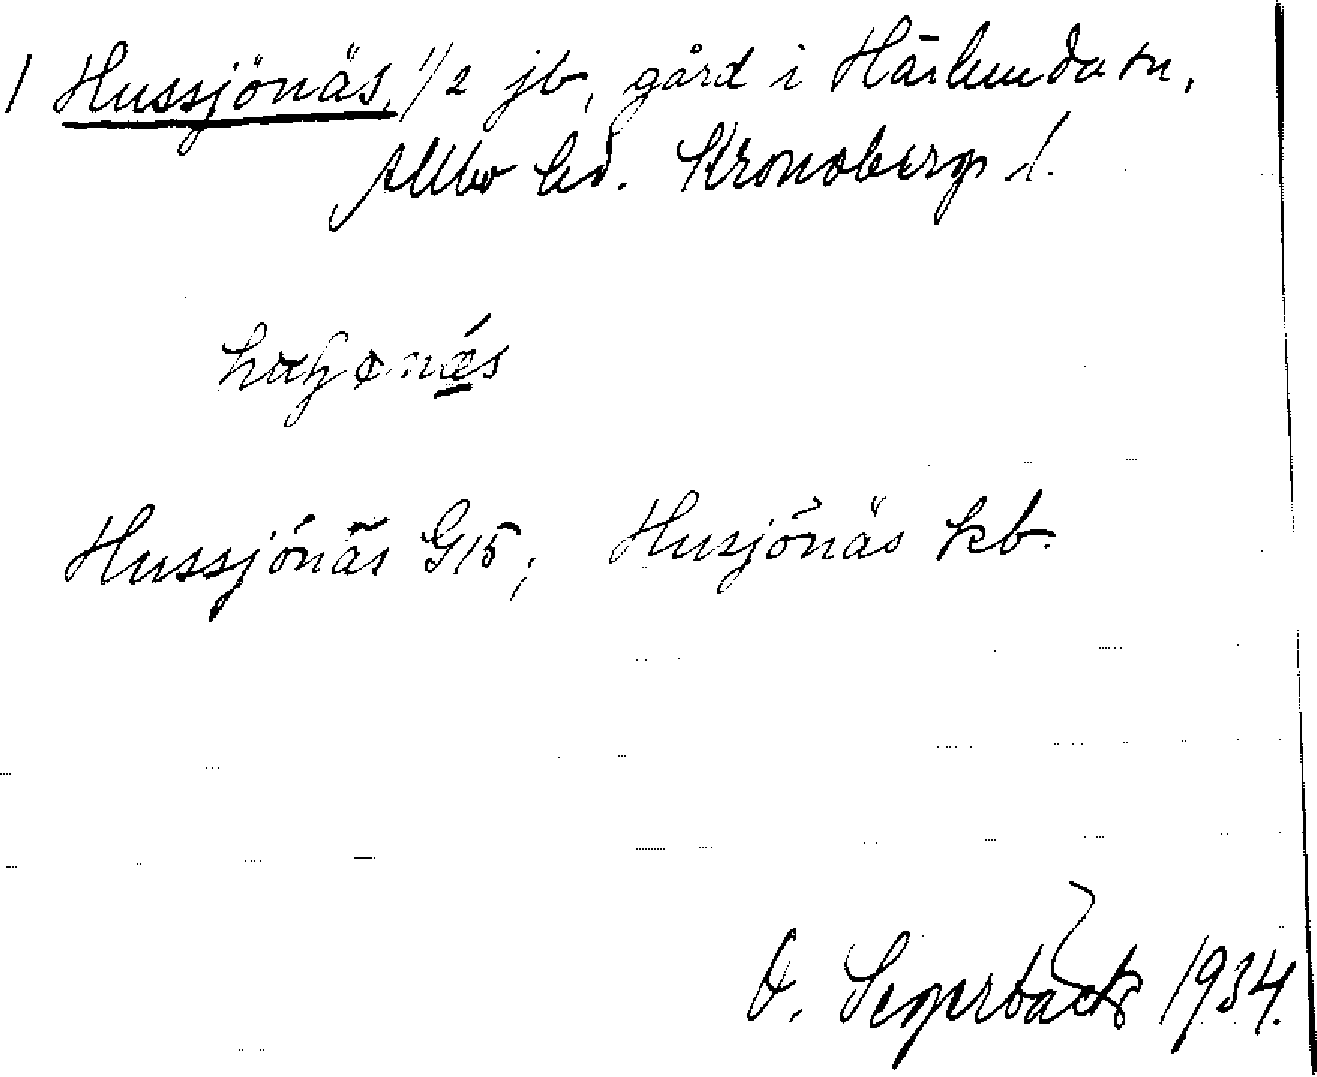 1 Hussjönäs, 1/2 jb, gård i Härlunda sn,
Allbo hd. Kronobergs l.
Hussjönäs G15; Husjönäs kb.
O. Segerbäck 1934.